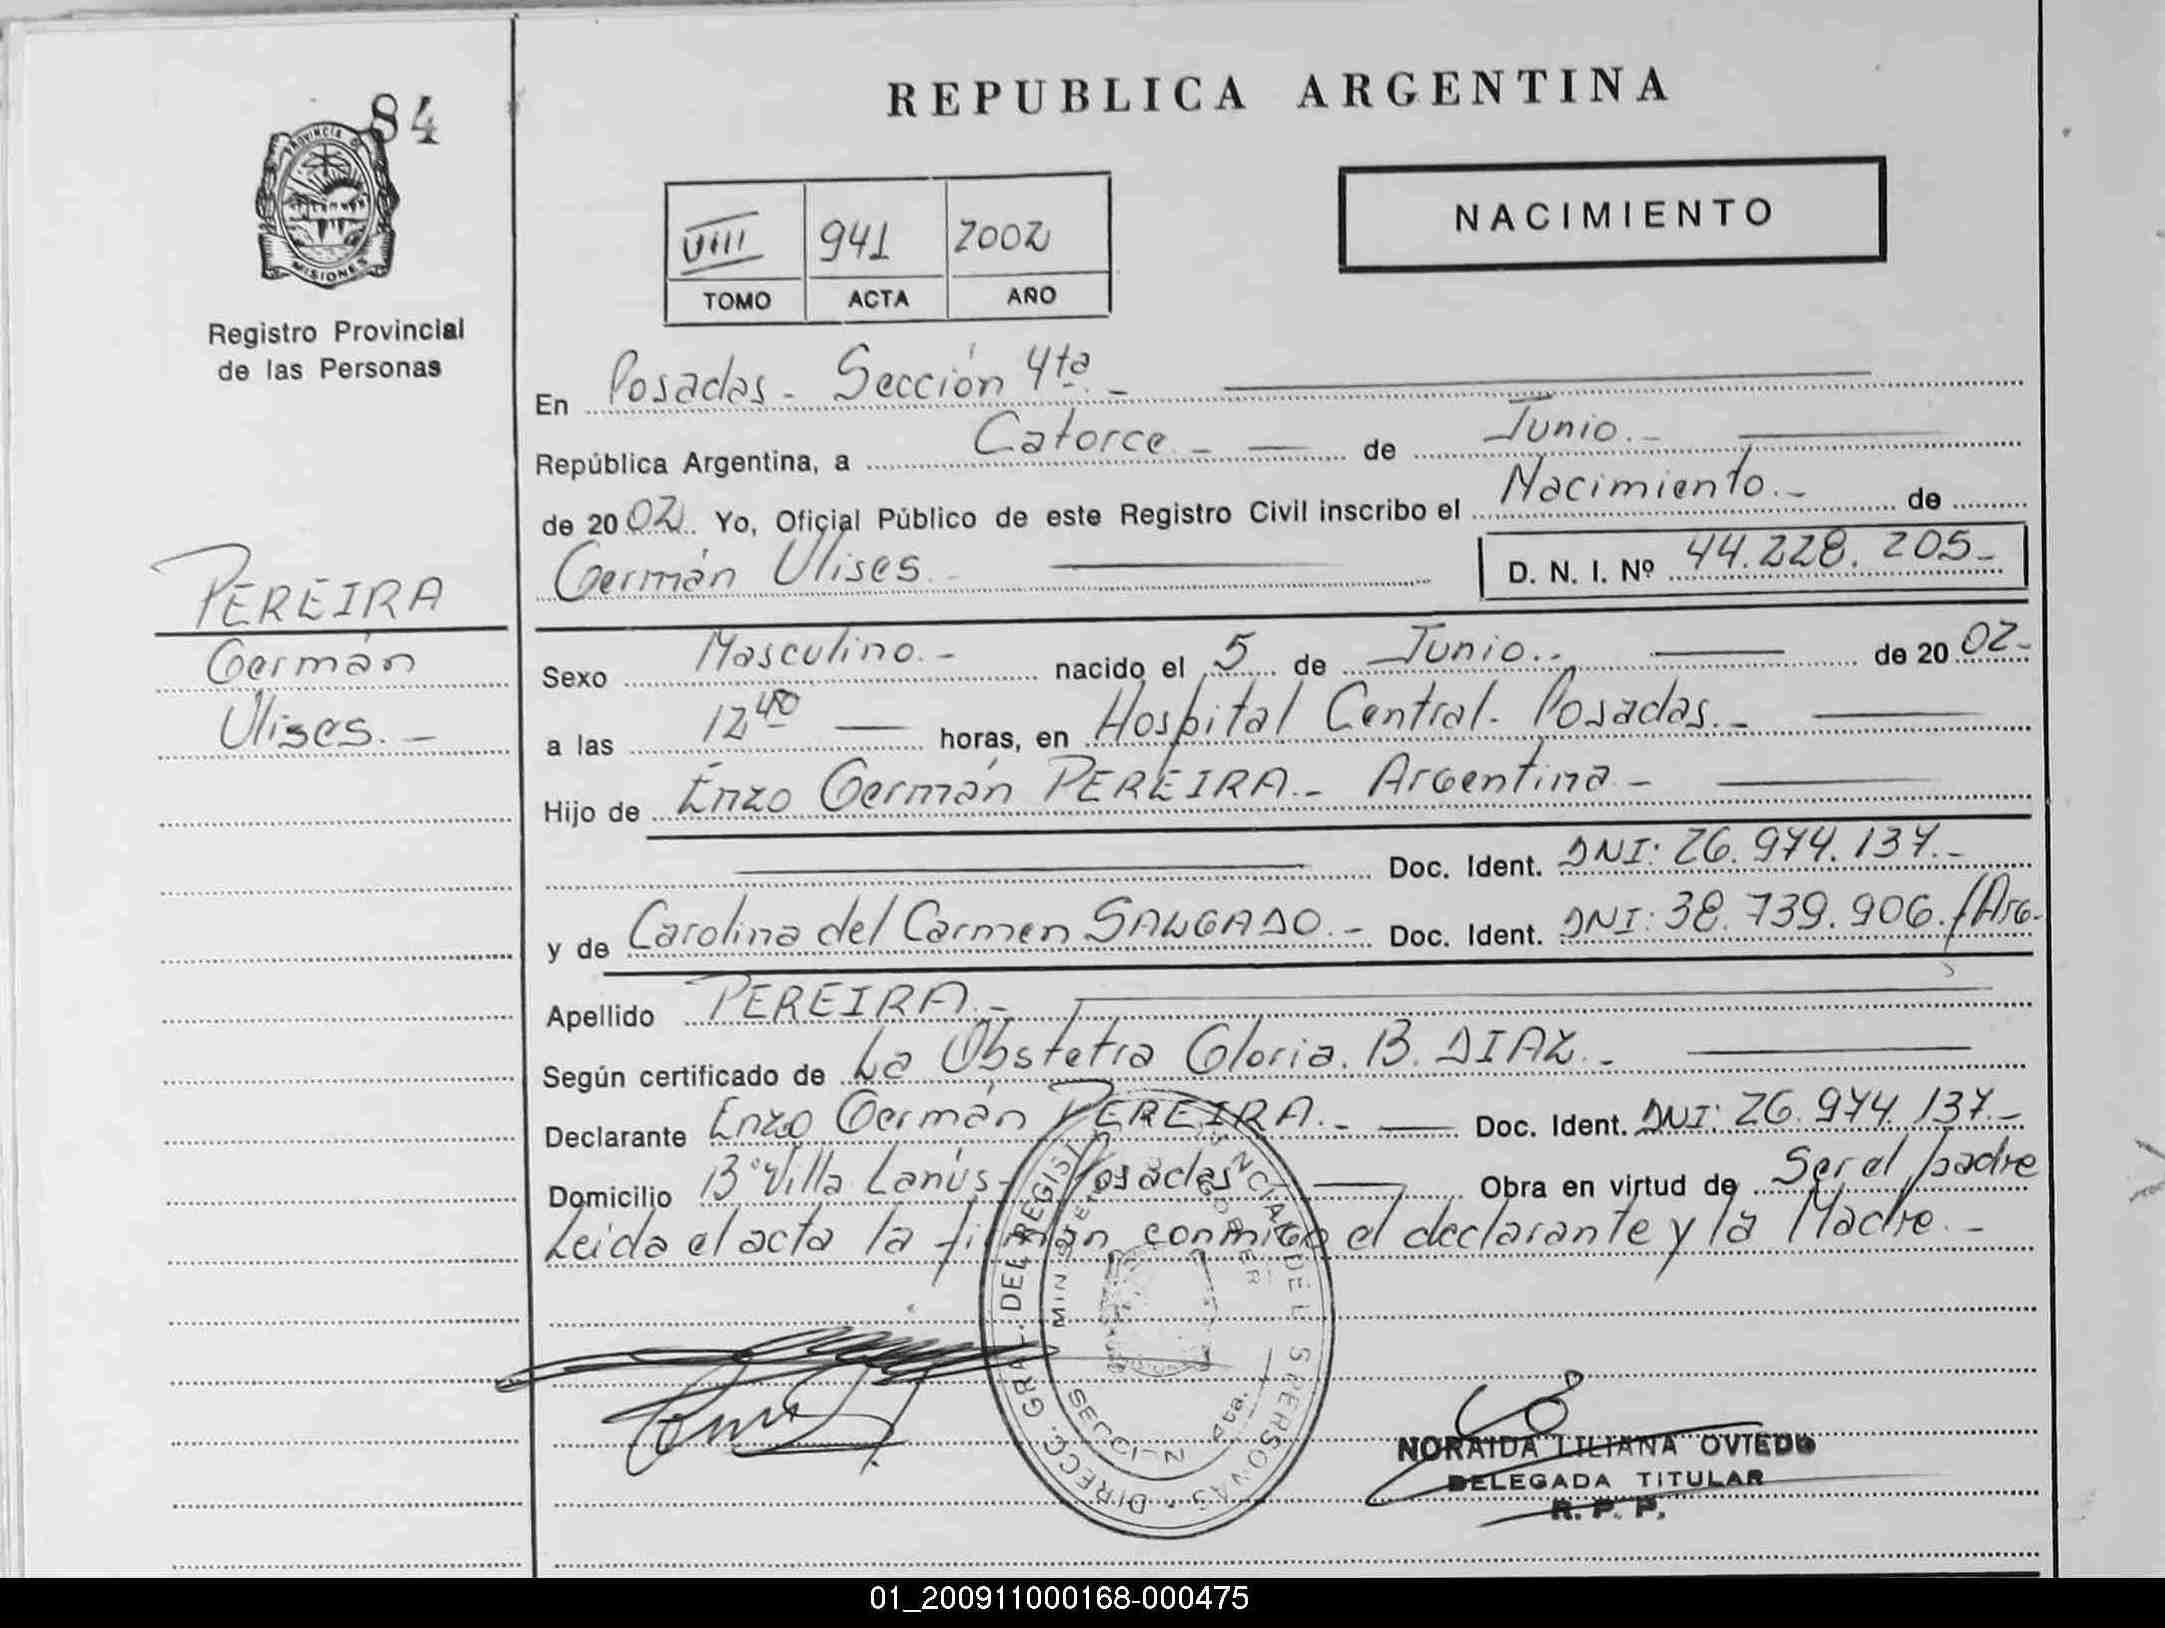 84
PROVINCIA DE
MISIONES
Registro Provincial
de las Personas
REPUBLICA ARGENTINA
NACIMIENTO
VIII 941 2002
TOMO ACTA AÑO
En Posadas - Sección 4ta -
República Argentina, a Catorce - de Junio.-
de 20 02 Yo, Oficial Público de este Registro Civil inscribo el Nacimiento.- de
Germán Ulises - D. N. I. Nº 44.228.205-
PEREIRA
Germán
Ulises. -
Sexo Masculino.- nacido el 5 de Junio.- de 20 02-
a las 12 40 horas, en Hospital Central. Posadas.-
Hijo de Enzo Germán PEREIRA.- Argentina -
Doc. Ident. DNI: 26.974.137.-
y de Carolina del Carmen SALGADO.- Doc. Ident. DNI: 38.739.906./Arg.
Apellido PEREIRA.-
Según certificado de La Obstetra Gloria. B. DIAZ.-
Declarante Enzo Germán PEREIRA.- Doc. Ident. DNI: 26.974.137.-
Domicilio Bº Villa Lanús- Posadas Obra en virtud de Ser el padre
Leida el acta la firman conmigo el declarante y la Madre.-
DIRECC. GRAL. DEL REGIST
DE LAS PERSONAS
SECCION 4ta.
NORAIDA LILIANA OVIEDO
DELEGADA TITULAR
R. P. P.
01_200911000168-000475